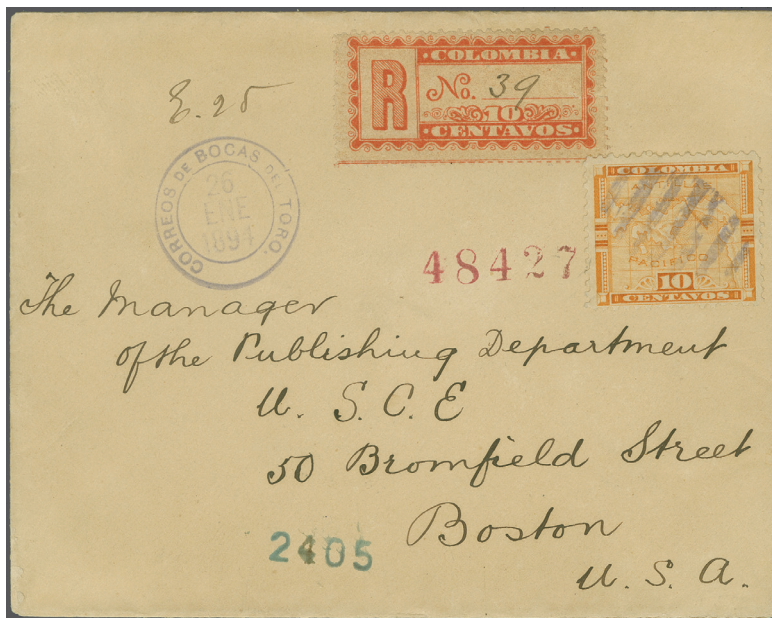 COLOMBIA
R No. 39
10
CENTAVOS
E. 25
CORREOS DE BOCAS DEL TORO.
26
ENE
1894
COLOMBIA
PACIFICO
10
CENTAVOS
48427
The Manager
of the Publishing Department
U. S. C. E
50 Bromfield Street
Boston
U. S. A.
2405